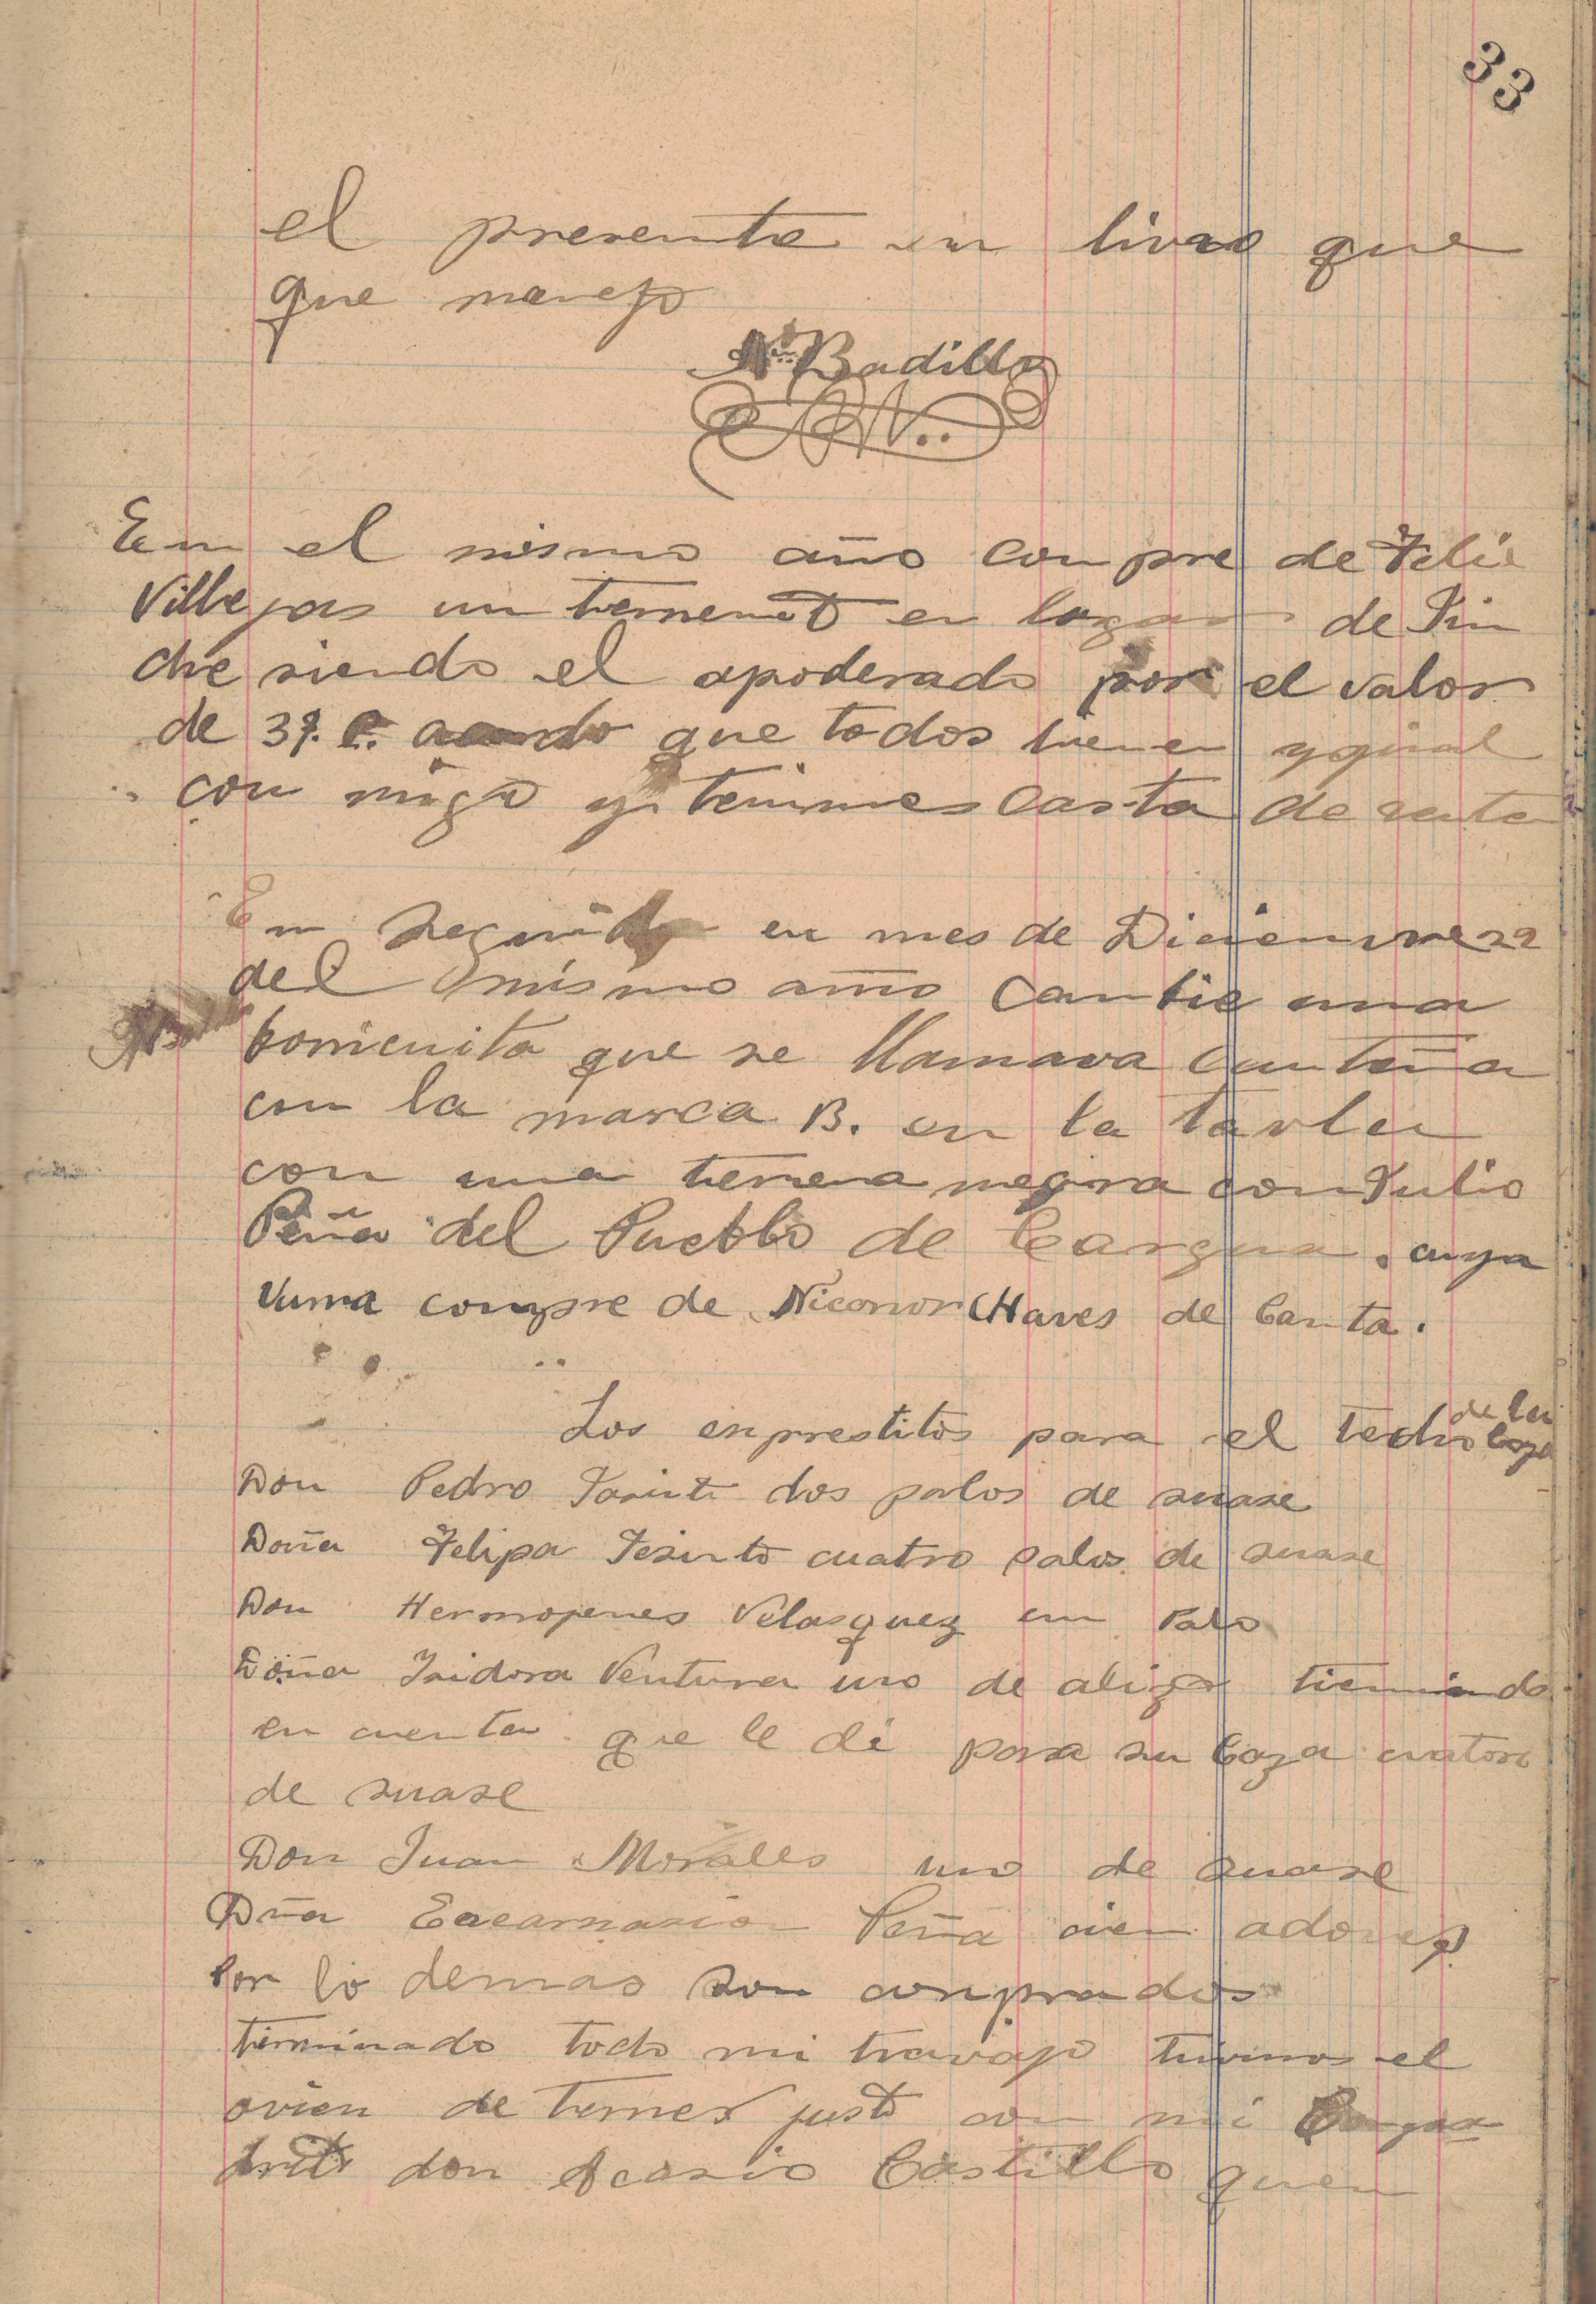 33
el presente en livro que
que manejo
N. Badillo
En el mismo año compre de Felis
Villegas un terreno en lugar de Pin
che siendo el apoderado por el valor
de 37. que todos tienen ygual
con migo y tenimes Carta de venta
En seguida en mes de Diciemvre 22
del mismo año Cambie una
borriquita que se llamava Canteña
con la marca B. en la tavla
con una ternera negra con Julio
Peña del Pueblo de Cargua. cuya
vurra compre de Niconor CHaves de Canta.
Los enprestitos para el techo de la Caza
Don Pedro Jasinto dos palos de suase
Doña Felipa Jesinto cuatro palos de suase
Don Hermojenes Velasquez un Palo
Doña Isidora Ventura uno de alizo tieniendo
en cuenta que le di para su Caza cuatoro
de suase
Don Juan Morales uno de suase
Dña Encarnasion Peña cien adoves
Por lo demas son conprados
terminado todo mi travajo tuvimos el
don Acasio Castillo quen